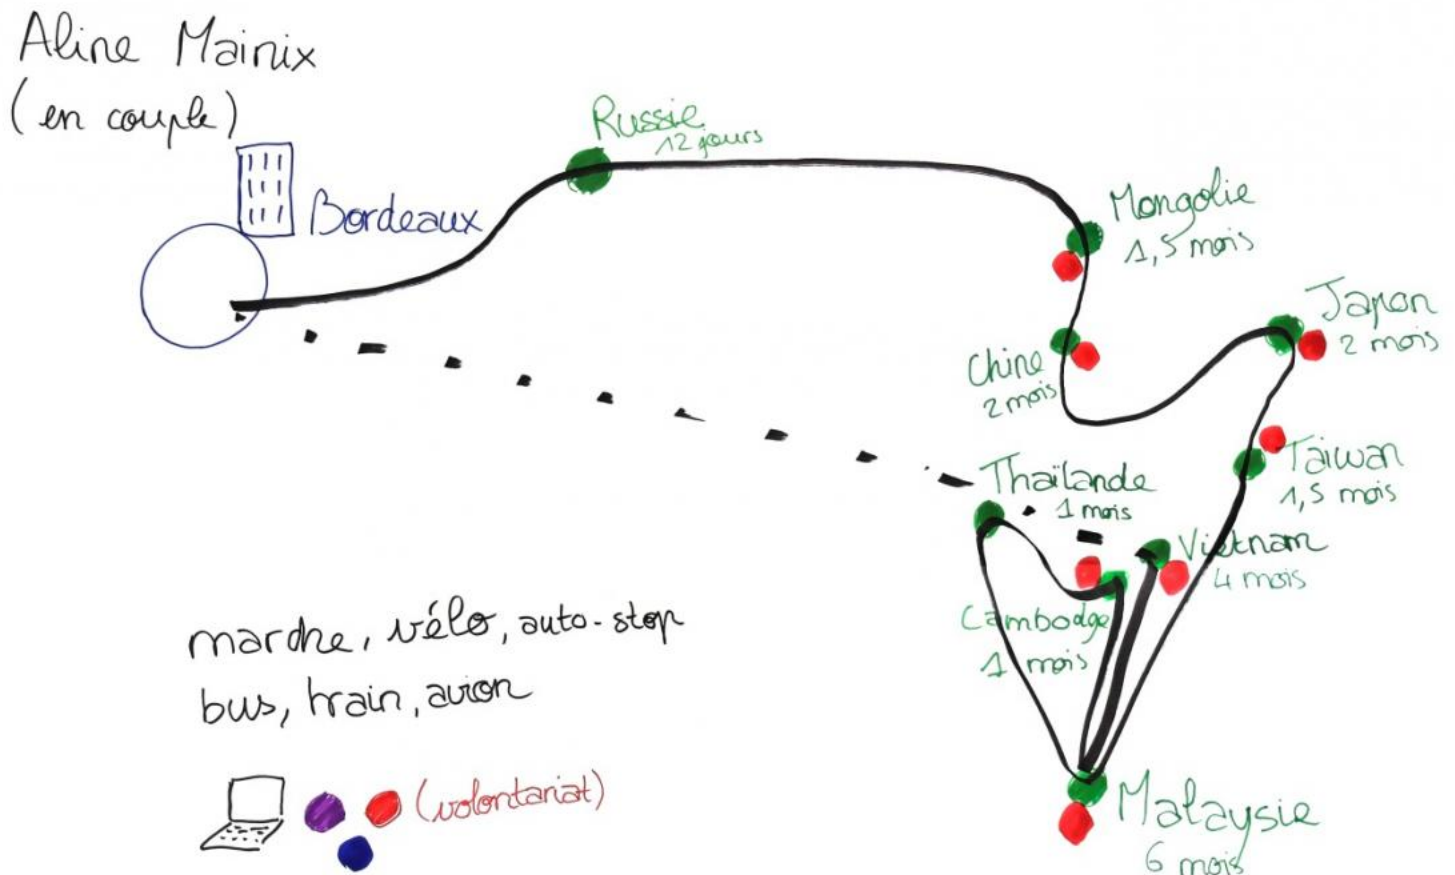 Aline Mainix
(en couple)
Bordeaux
Russie
12 jours
Mongolie
1,5 mois
Japon
2 mois
Chine
2 mois
Taiwan
1,5 mois
Thaïlande
1 mois
Vietnam
4 mois
Cambodge
1 mois
Malaysie
6 mois
marche, vélo, auto-stop
bus, train, avion
(volontariat)